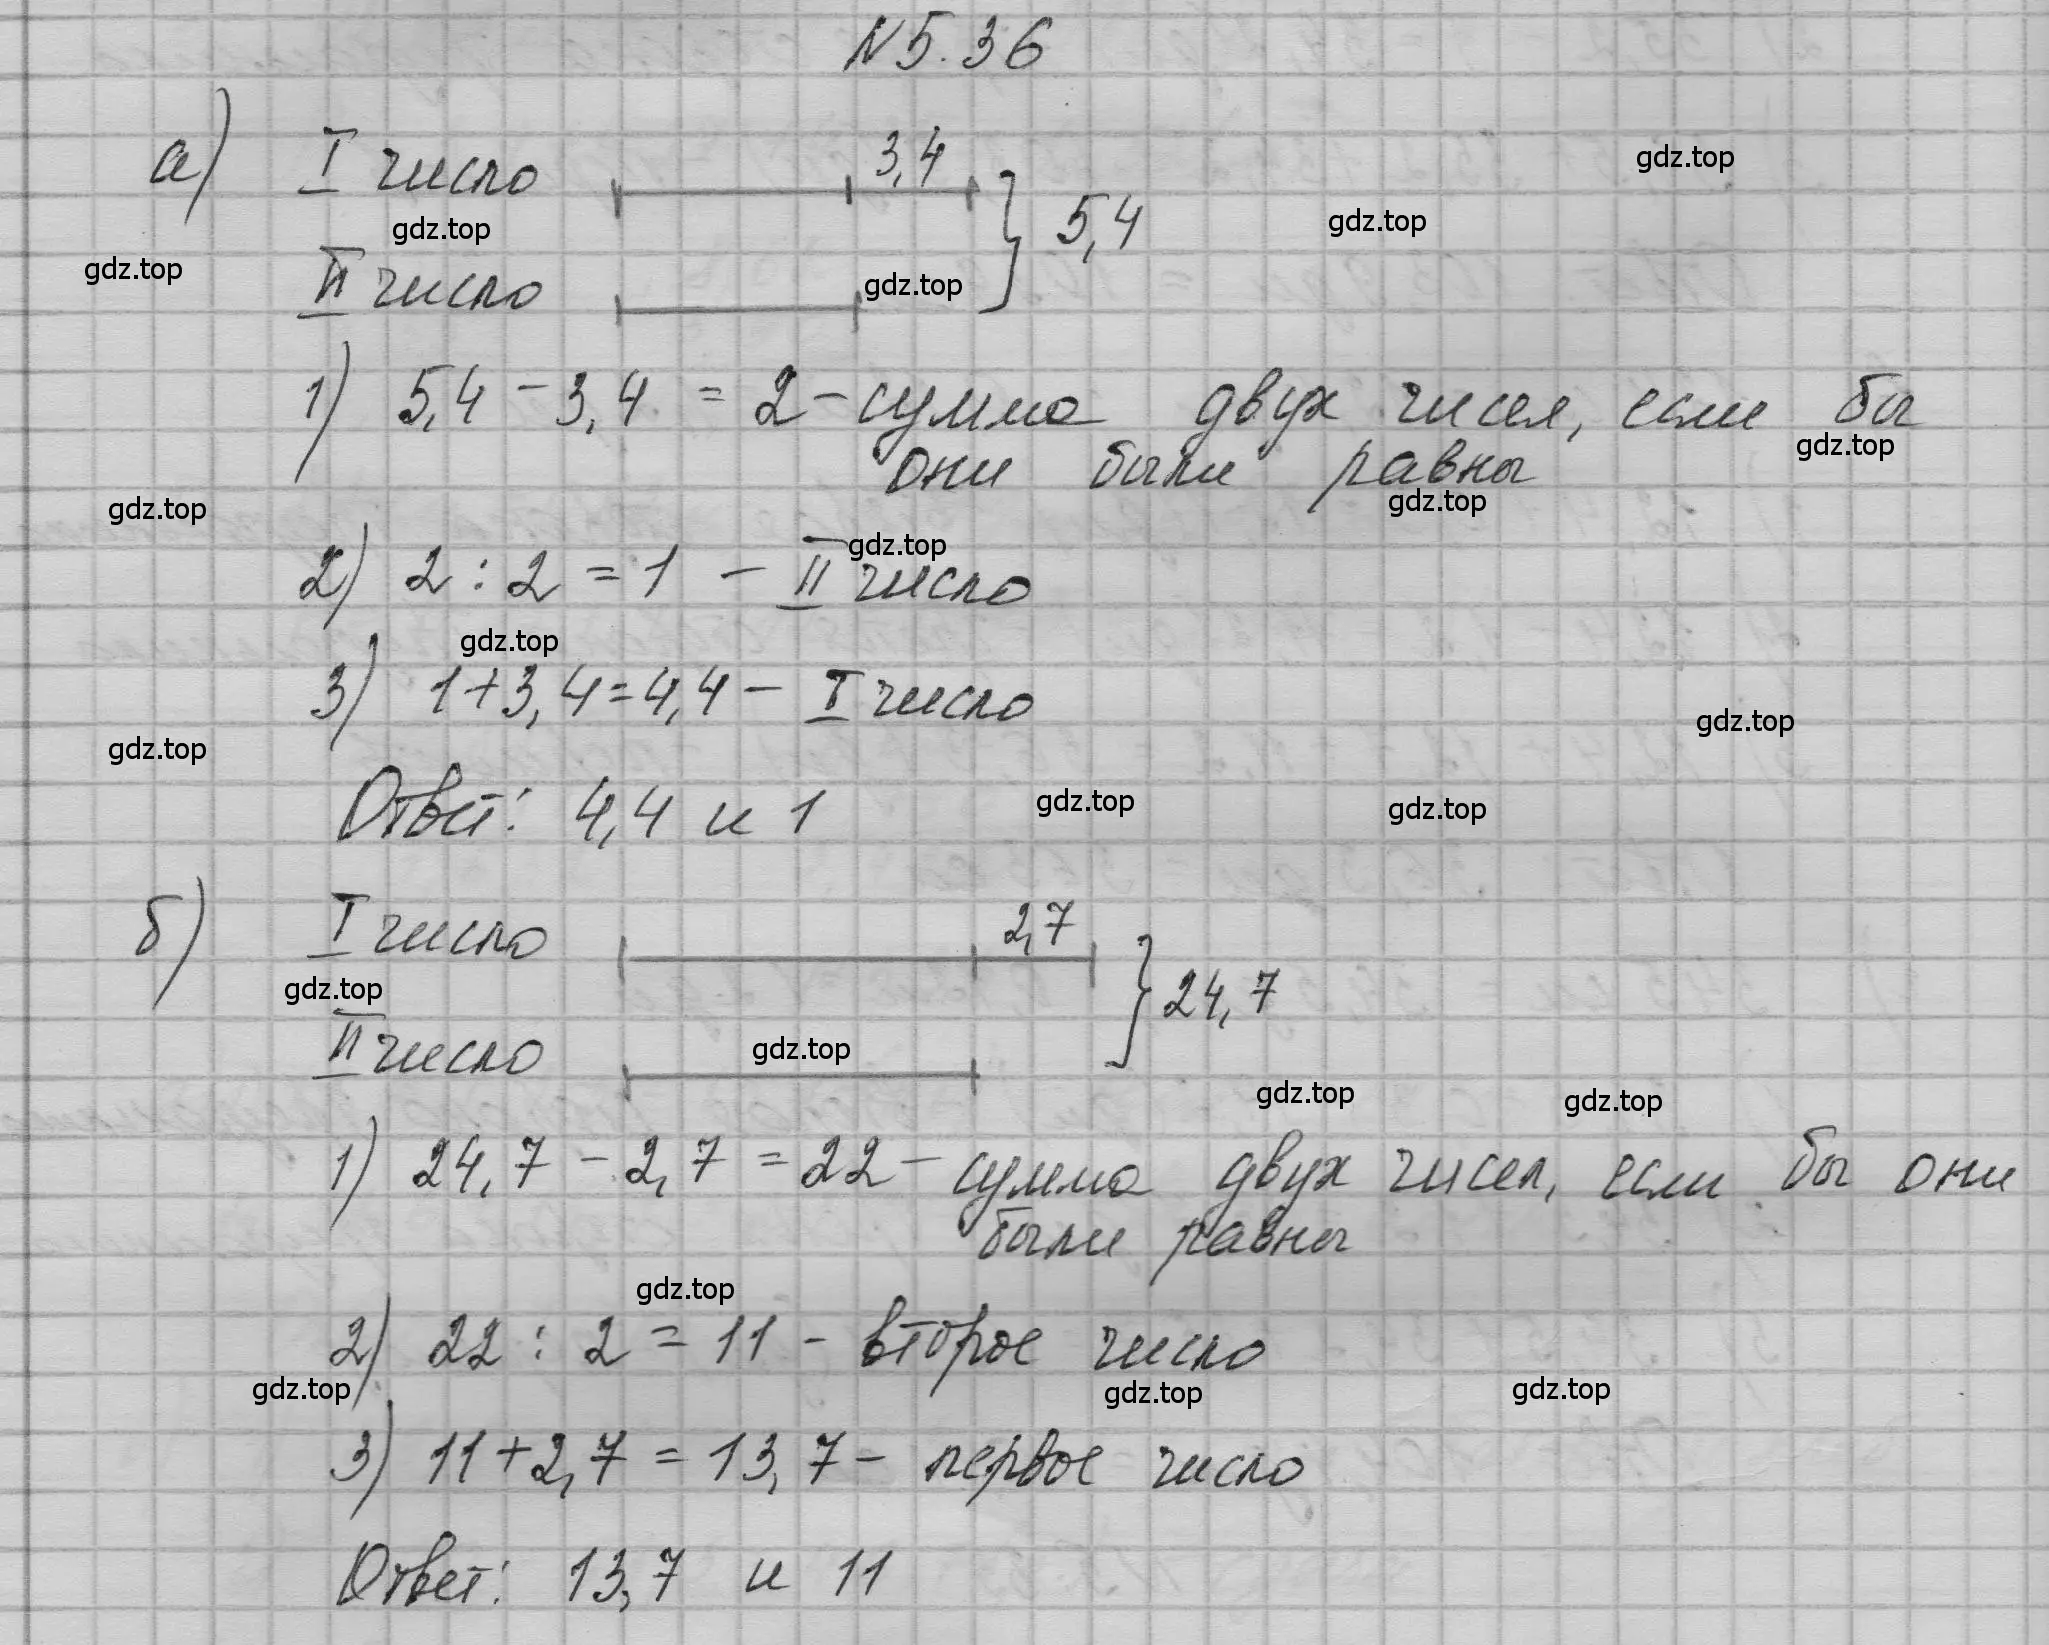 N 5.36
а) I число 3,4
gdz.top
gdz.top gdz.top
gdz.top
} 5,4
II число gdz.top
1) 5,4 - 3,4 = 2 - сумма двух чисел, если бы
gdz.top
они были равны
gdz.top gdz.top
gdz.top
2) 2 : 2 = 1 - II число
gdz.top
3) 1 + 3,4 = 4,4 - I число
gdz.top
gdz.top
Ответ: 4,4 и 1
gdz.top gdz.top
б) I число 2,7
gdz.top
} 24,7
II число gdz.top
gdz.top gdz.top
1) 24,7 - 2,7 = 22 - сумма двух чисел, если бы они
были равны
gdz.top
2) 22 : 2 = 11 - второе число
gdz.top gdz.top gdz.top
3) 11 + 2,7 = 13,7 - первое число
Ответ: 13,7 и 11